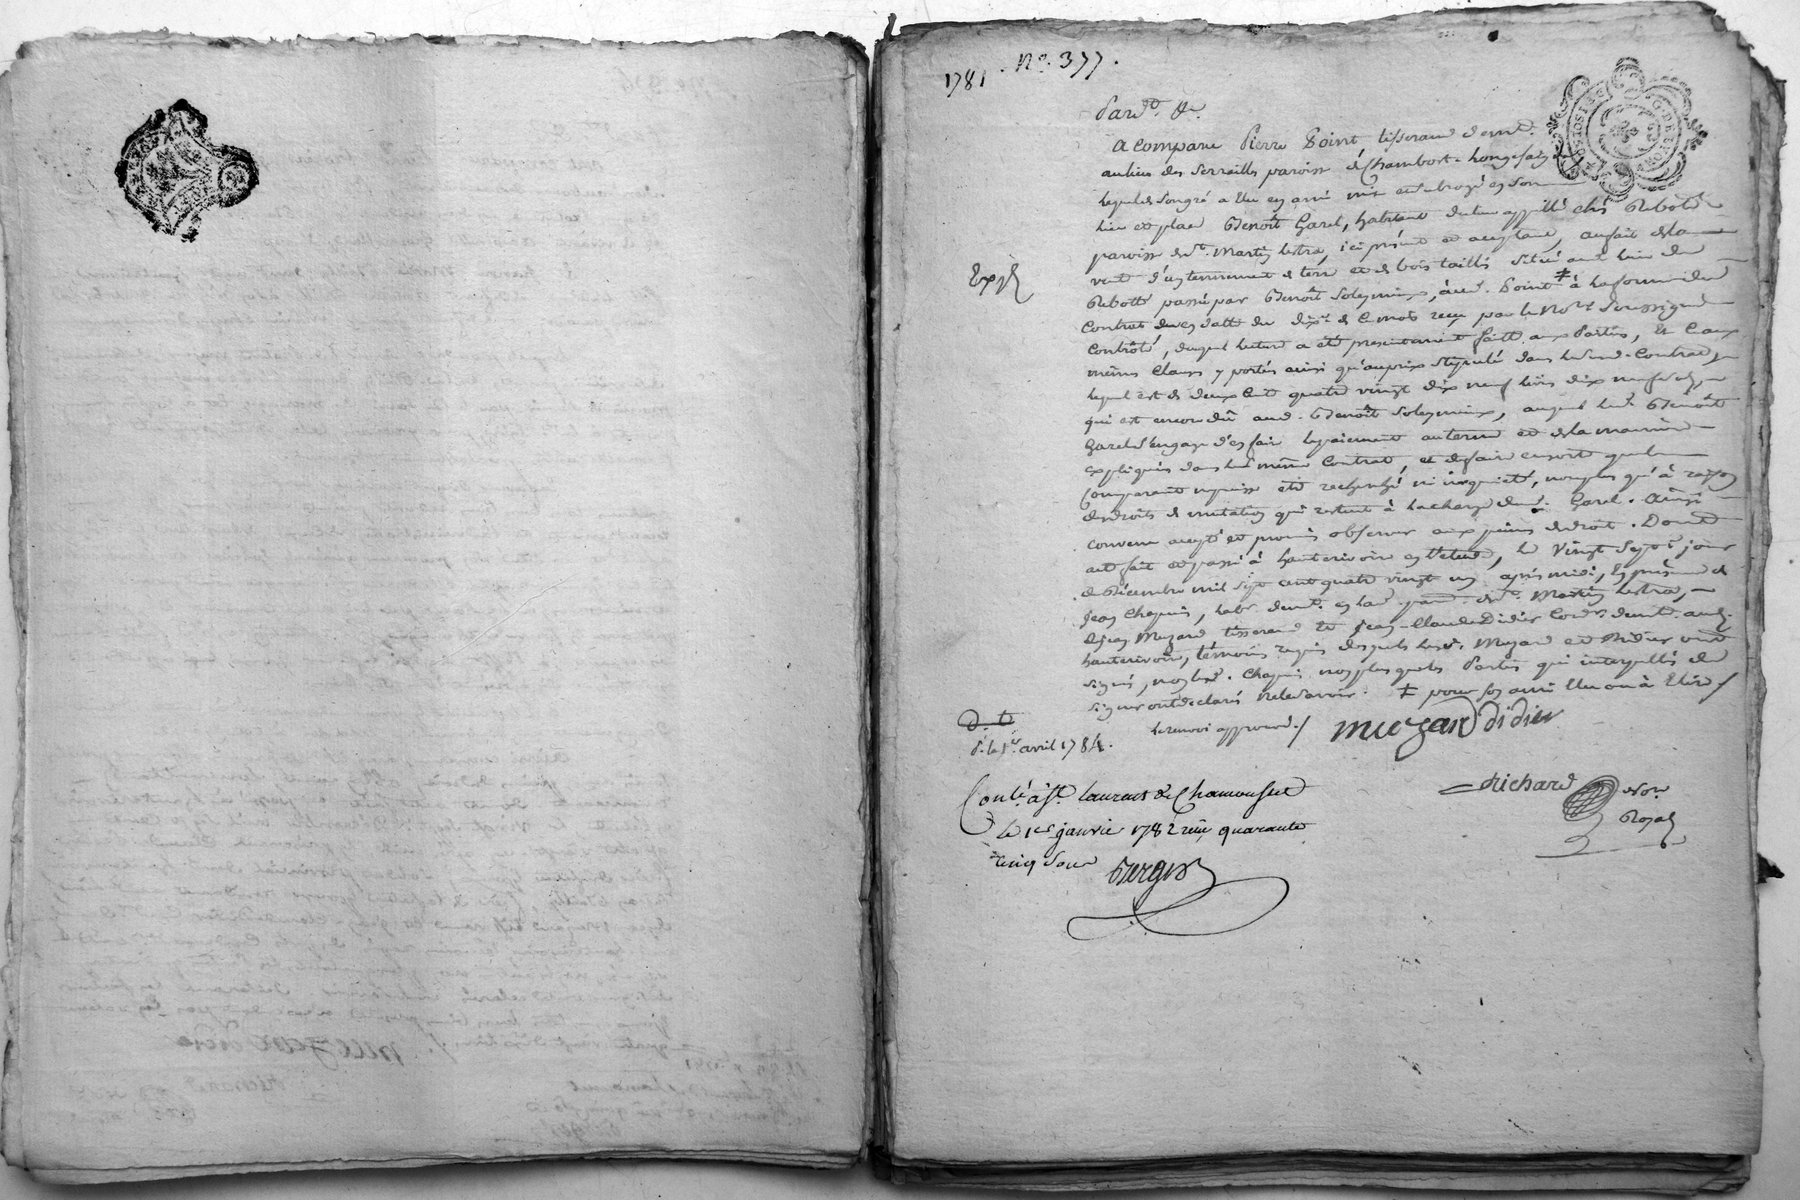 1781. no. 377.
Pard.t &c
a comparu Pierre Point, tisserand demt.
au lieu des Serrailles paroisse de Chambost-Longesaigne
lequel de son gré a élu en ami mis et subrogé en son
lieu et place Benoît Garel, habitant du lieu appellé chés Rebotte
paroisse de St. Martin Lestra, ici présent et acceptant, au fait de la
vente d'un tennement de terre et de bois taillis situé aud. lieu de
Rebotte passée par Benoît Soleymieux, aud. Point ‡ à la forme du
contrat du en datte du dix de ce mois reçu par le no.re soussigné
Controlé, duquel lecture a été presentement faitte aux Parties, Et c'aux
mêmes clauses y portés ainsi qu'au prix stipulé dans led. contrat,
lequel est de deux cent quatre vingt dix neuf livres dix neuf sols,
qui est encore dû aud. Benoît Soleymieux, auquel led. Benoît
Garel s'engage d'en faire le paiement au terme et de la maniere
expliqués dans led. même contrat, et de faire ensorte que le
Comparant ne puisse etre recherché ni inquieté, non plus qu'à raison
des droits de mutation qui restent à la charge dud. Garel. Ainsi
convenu accepté et promis observer aux peines de droit. Dont
acte fait et passé à hauterivoire en l'etude, le vingt sept.e jour
de Décembre mil sept cent quatre vingt un après midi, En présence de
Jean Chapuis, habt. demt. en lad. paroisse de St. Martin Lestra,
de Jean Muzard, tisserand et Jean-Claude Didier Cord.r demt. aud.
hauterivoire, témoins requis desquels lesd. Muzard et Didier ont
signés, non led. Chapuis non plus que les Parties qui interpellés de
signer ont declarés ne le savoir. ‡ pour son ami élu ou à élire /
le renvoi approuvé. /
muzard didier
Exp.é
D. t
d. le 1er. avril 1784.
Conlé. à St. Laurent de Chamousset
le 1er janvier 1782 reçu quarante
cinq sous
Richard no.re
Royal